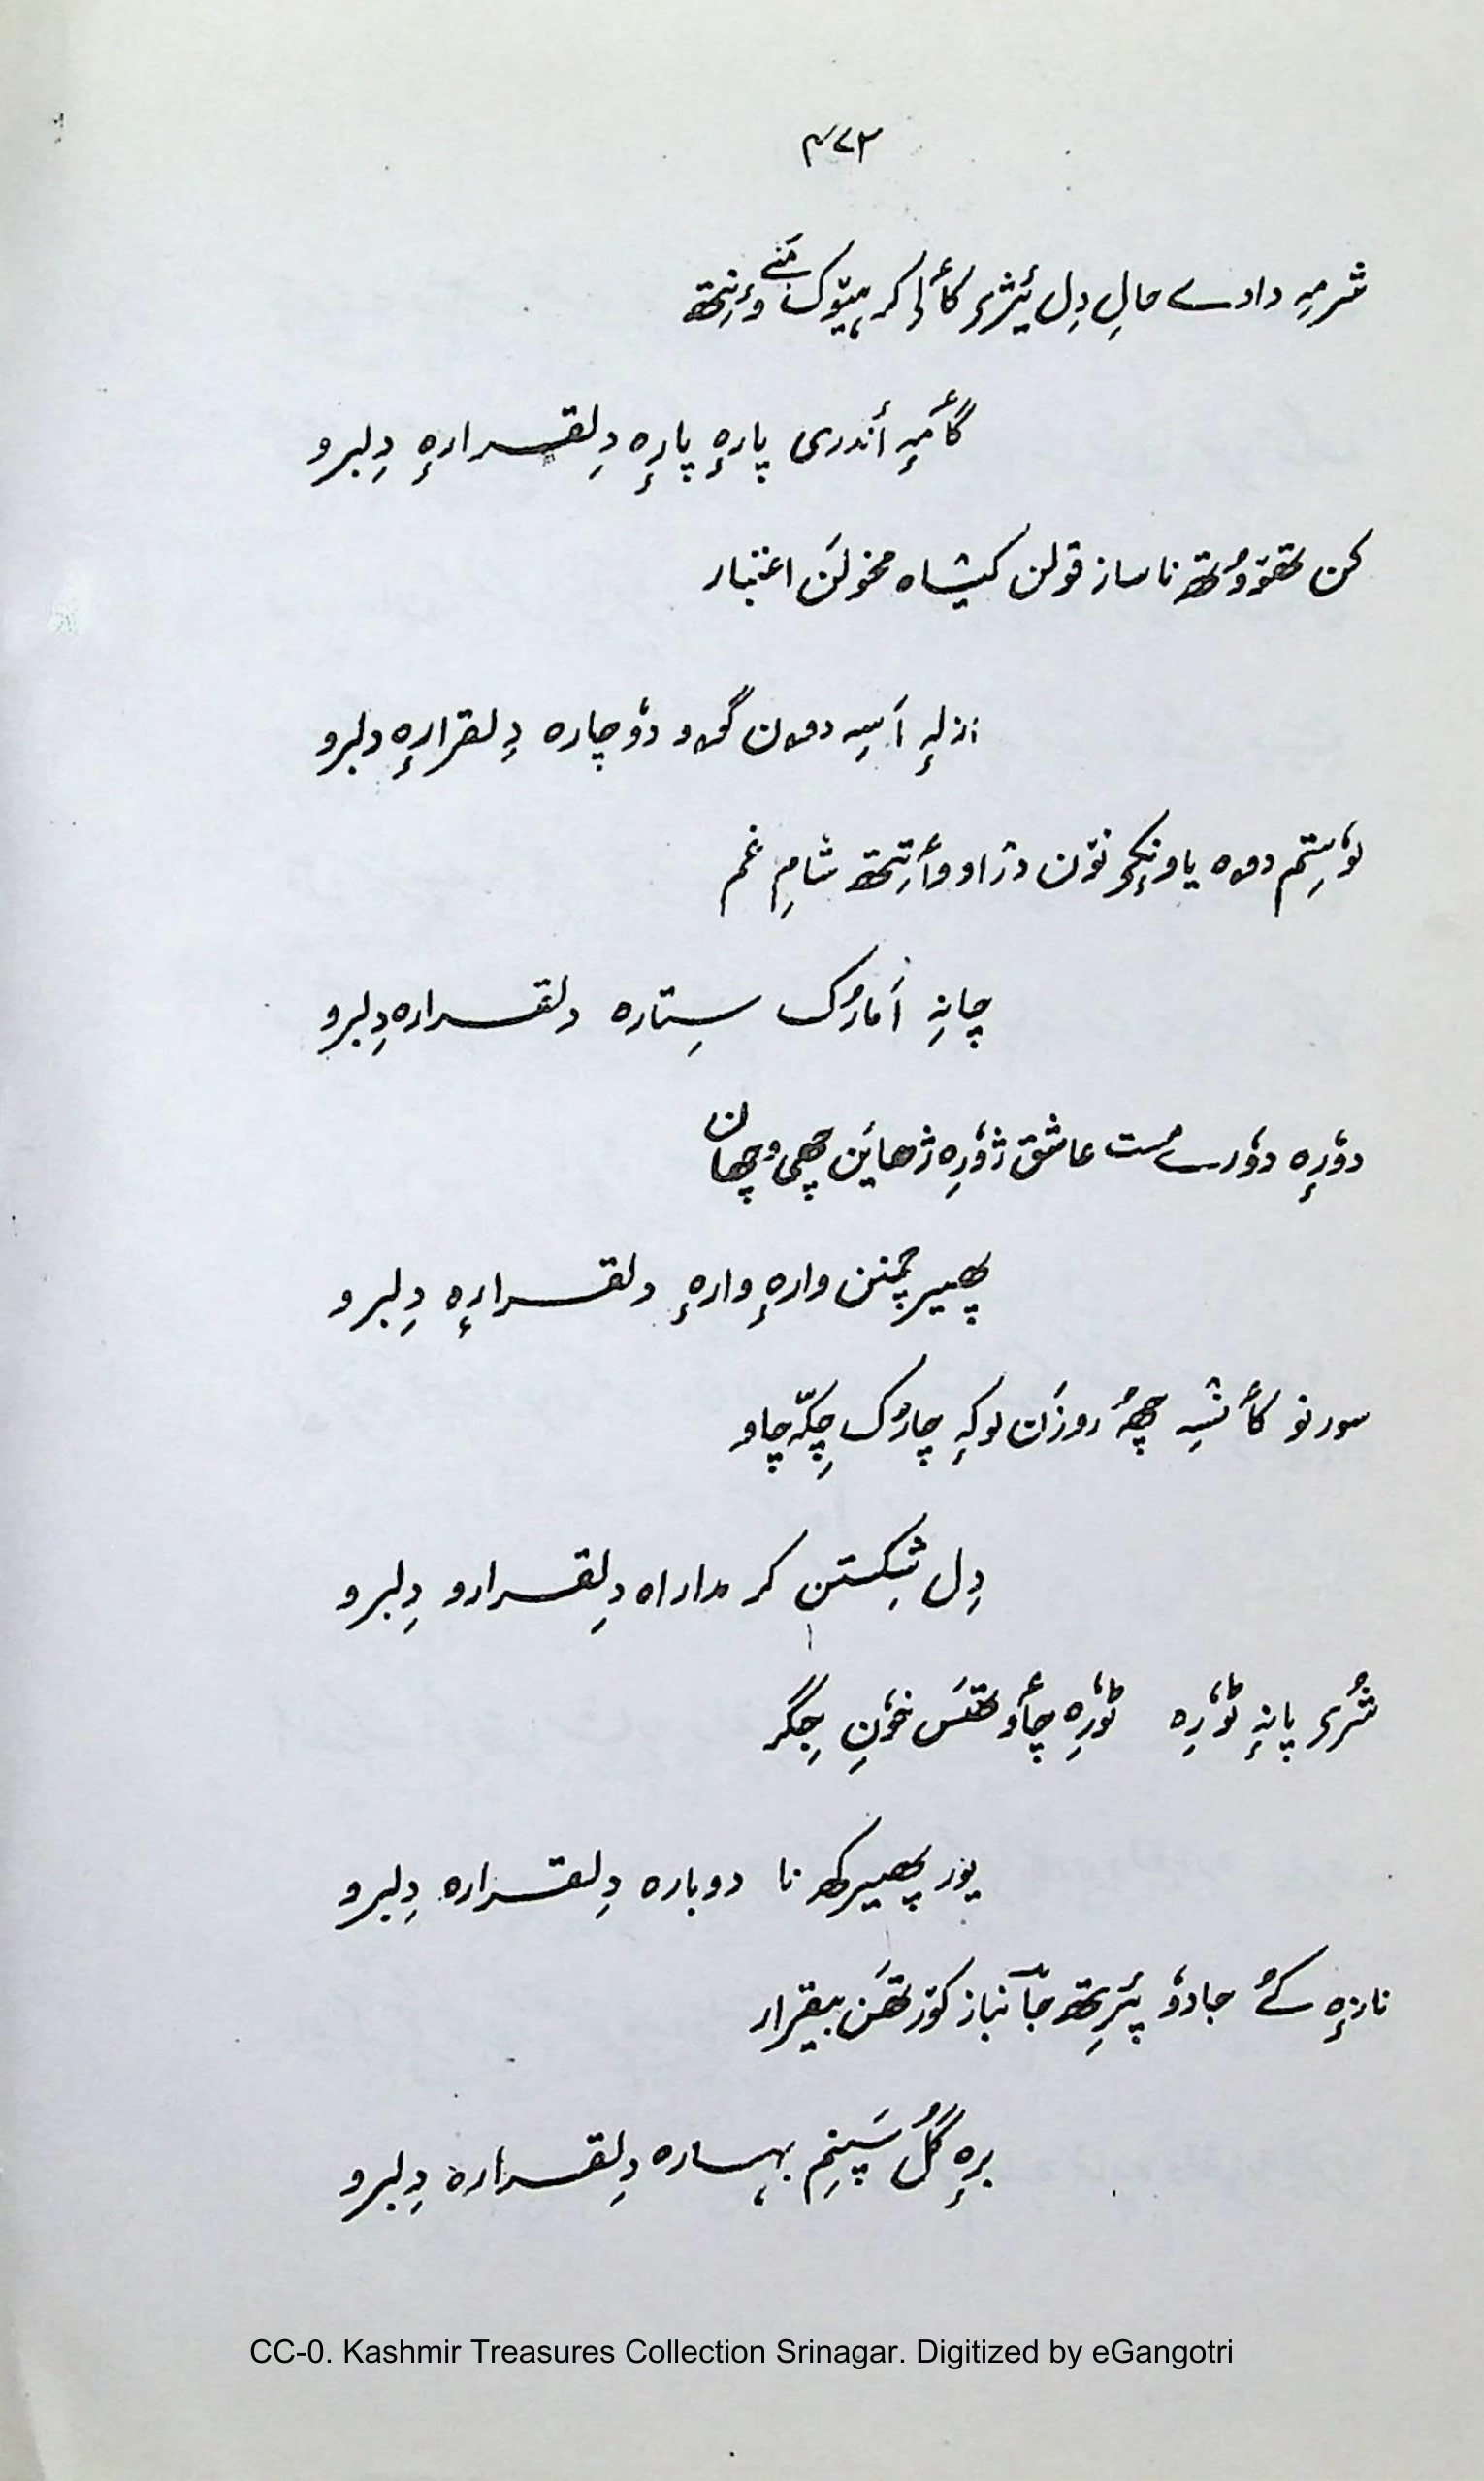 ۴۷۳
شرمہِ دادے حالِ دِل یُتژٕ کألۍ کر ہیٚتوٚک مَنے ؤنِتھ
گأمہٕ أندری پارہٕ پارہٕ دِلقرارہٕ دِلبرو
کن تھوٚوُتھ ناسازِ قولن کیٛشاہ مخولَن اعتبار
ازلہٕ أسۍ دوہن گوو دۄچارہ دِلقرارہٕ دلبرو
لوٗستم دوہ یاونٕکۍ نوٚن دراو وأتِتھ شامِ غم
چانہِ أمارُک سِتارہ دلقرارہ دِلبرو
دوٗرِہ دوٗرے مست عاشق ژوٗرِہ ژھایَن چھی وچھان
پھیر چمنن وارہٕ وارہٕ دلقرارہٕ دِلبرو
سورنو کأنسہِ چھُ روزَن لوکہٕ چارُک چِکہٕ چاو
دِل شِکستن کر مدارہ دِلقرارو دِلبرو
شُرۍ پانہٕ ٹوٗرِہ ٹوٗرِہ چأوتھَس خوٗنِ جِگر
یور پھیرکھ نا دوبارہ دِلقرارہ دِلبرو
نازٕہ کے جادوٗ پٔرِتھ جانباز کوٚرتھَن بیقرار
برہٕ گُل سَپنِم بہارہ دِلقرارہ دِلبرو
CC-0. Kashmir Treasures Collection Srinagar. Digitized by eGangotri